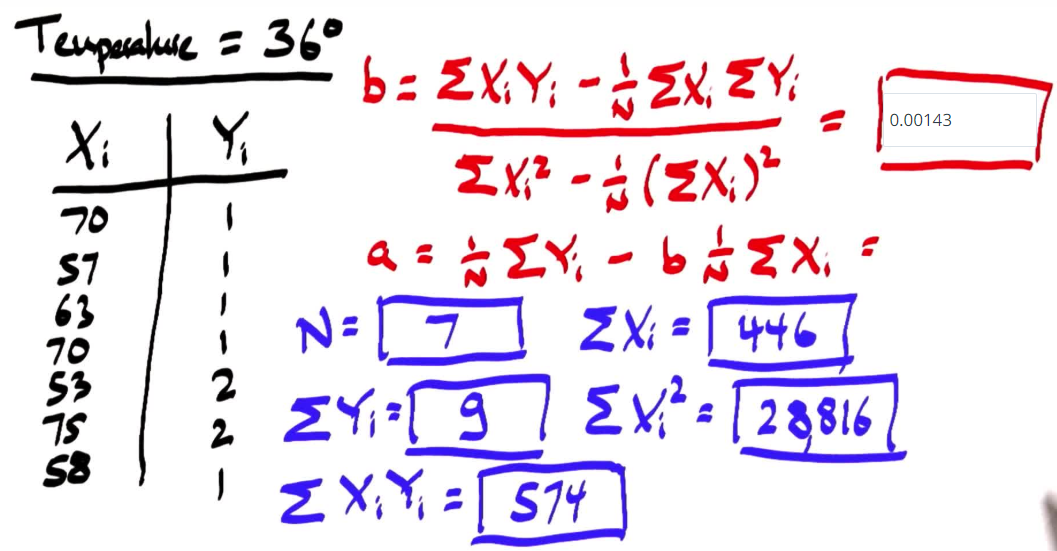 Temperature = 36°
Xi Yi
70 1
57 1
63 1
70 1
53 2
75 2
58 1
b = ΣXiYi - 1/N ΣXi ΣYi
ΣXi² - 1/N (ΣXi)²
= 0.00143
a = 1/N ΣYi - b 1/N ΣXi =
N = 7 ΣXi = 446
ΣYi = 9 ΣXi² = 28,816
ΣXiYi = 574